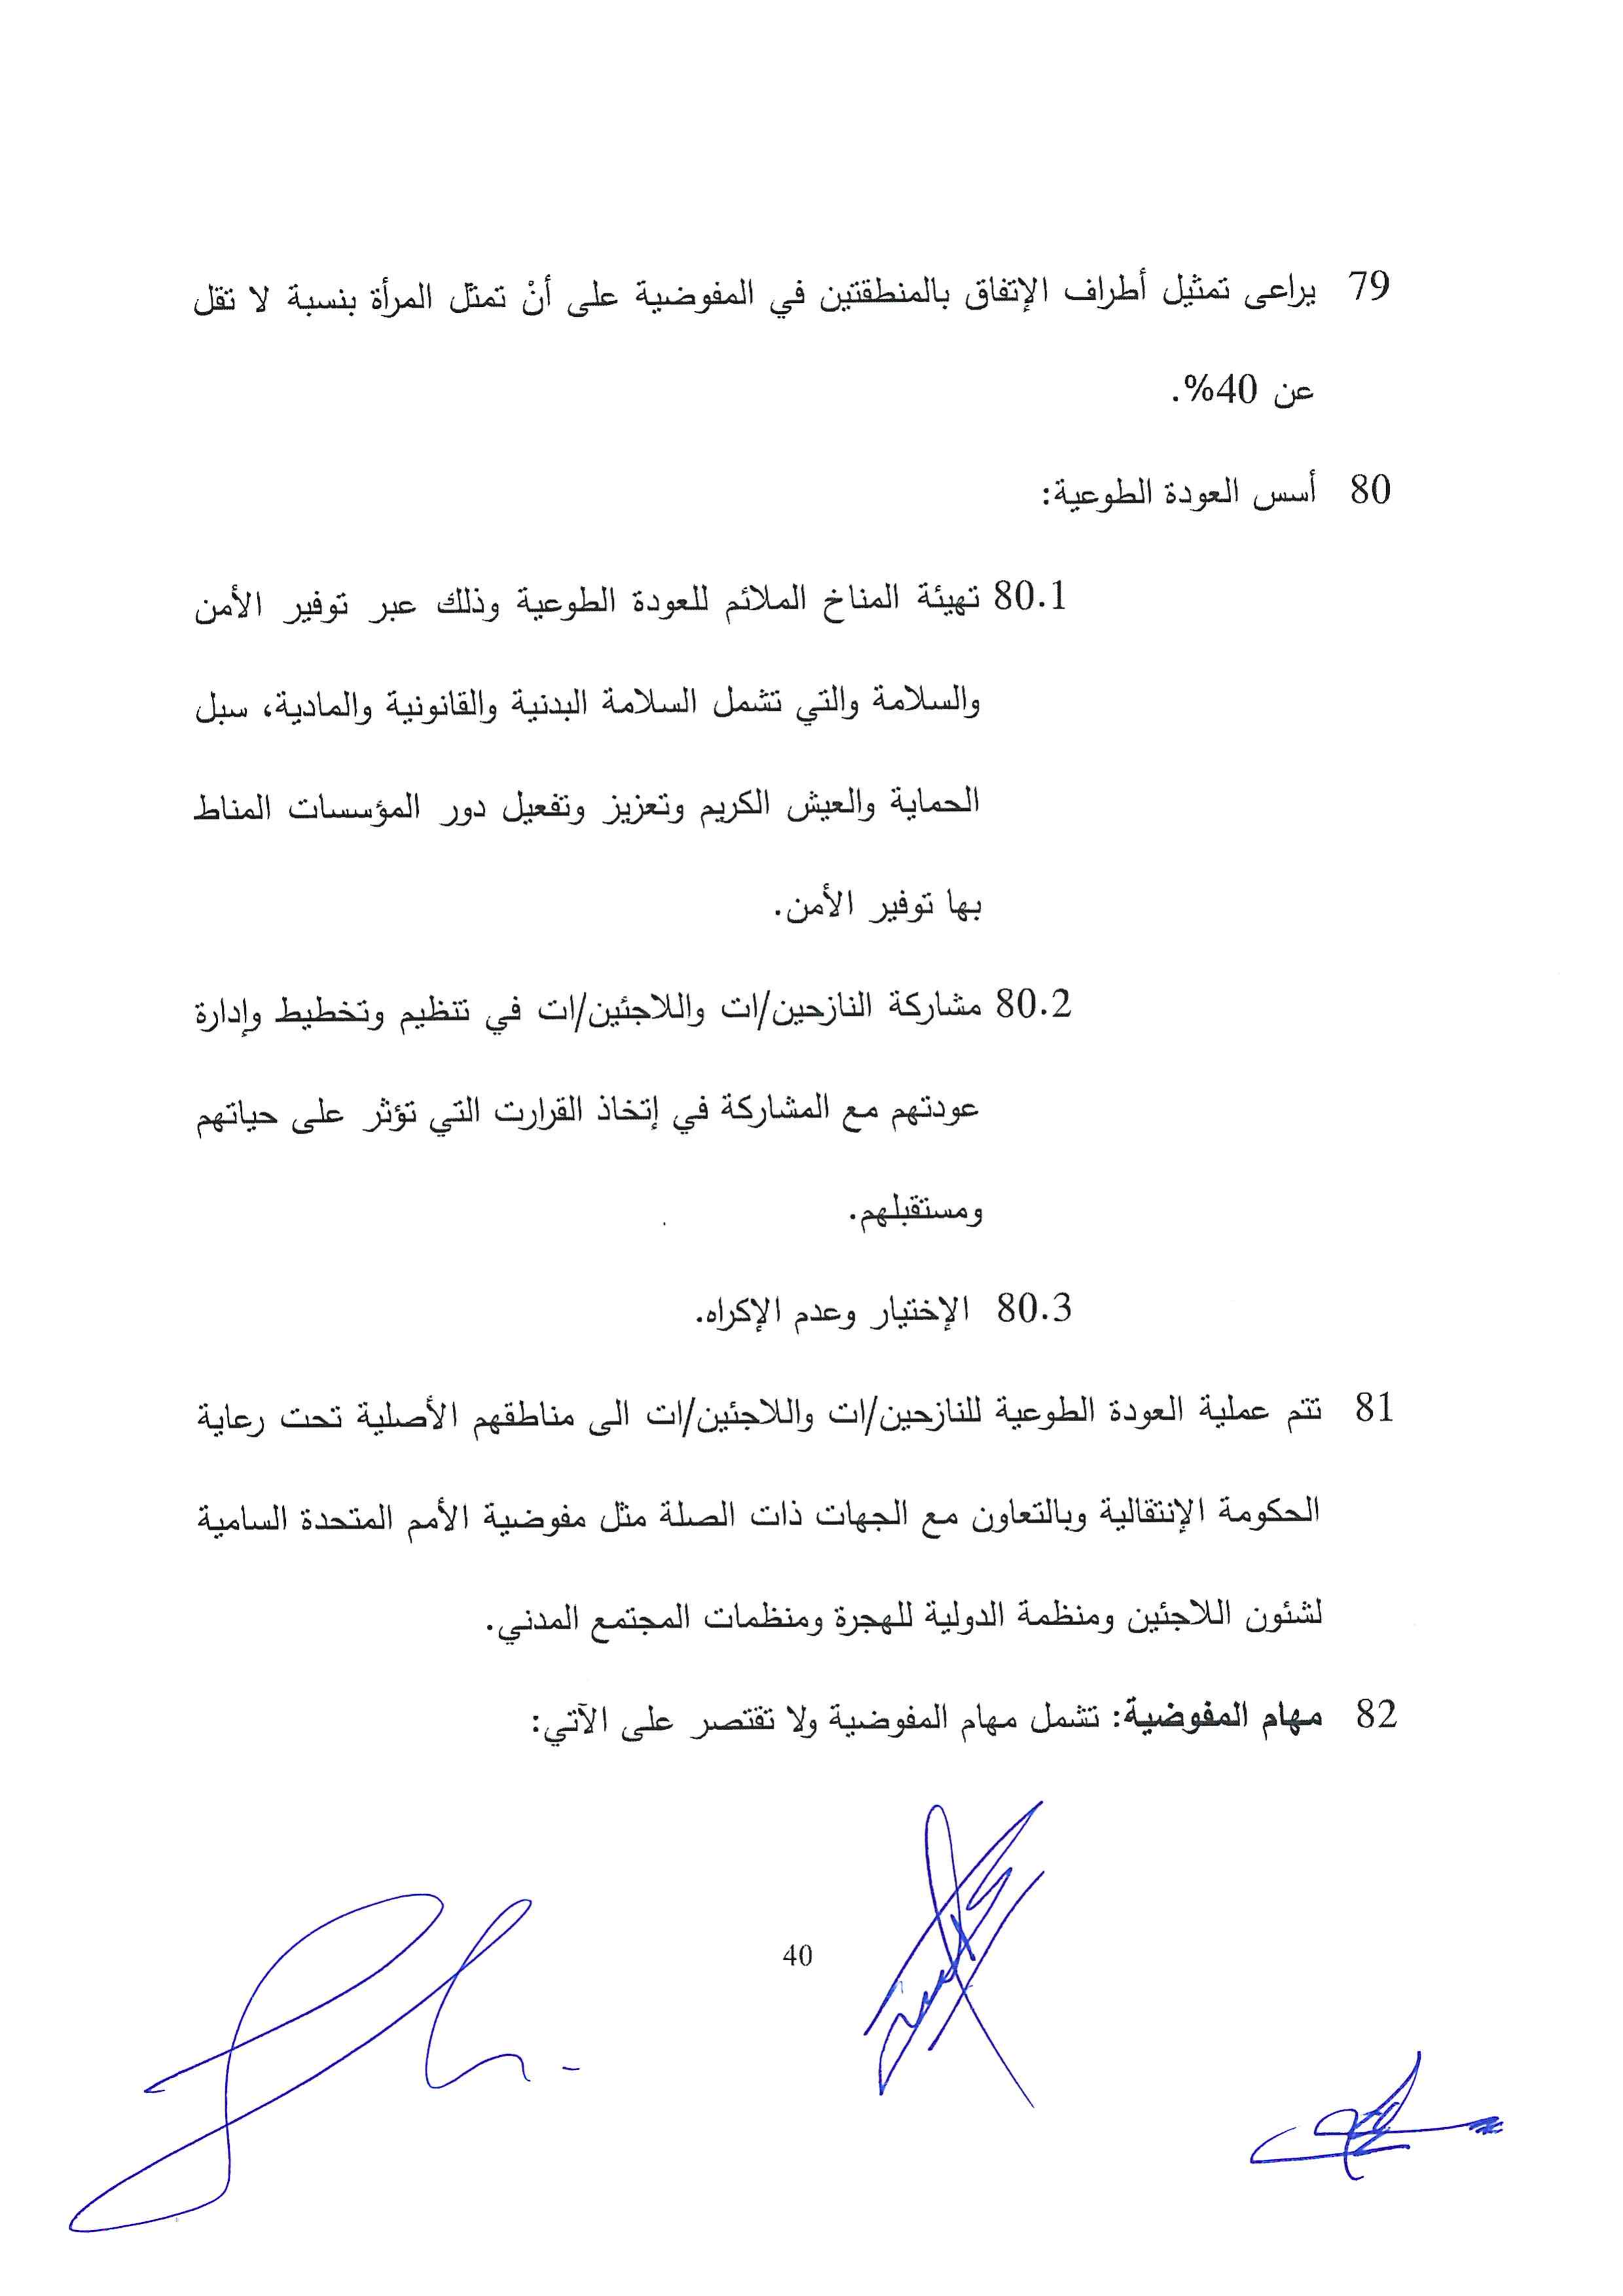 79 يراعى تمثيل أطراف الإتفاق بالمنطقتين في المفوضية على أنْ تمثل المرأة بنسبة لا تقل
عن 40%.
80 أسس العودة الطوعية:
80.1 تهيئة المناخ الملائم للعودة الطوعية وذلك عبر توفير الأمن
والسلامة والتي تشمل السلامة البدنية والقانونية والمادية، سبل
الحماية والعيش الكريم وتعزيز وتفعيل دور المؤسسات المناط
بها توفير الأمن.
80.2 مشاركة النازحين/ات واللاجئين/ات في تنظيم وتخطيط وإدارة
عودتهم مع المشاركة في إتخاذ القرارت التي تؤثر على حياتهم
ومستقبلهم.
80.3 الإختيار وعدم الإكراه.
81 تتم عملية العودة الطوعية للنازحين/ات واللاجئين/ات الى مناطقهم الأصلية تحت رعاية
الحكومة الإنتقالية وبالتعاون مع الجهات ذات الصلة مثل مفوضية الأمم المتحدة السامية
لشئون اللاجئين ومنظمة الدولية للهجرة ومنظمات المجتمع المدني.
82 مهام المفوضية: تشمل مهام المفوضية ولا تقتصر على الآتي:
40